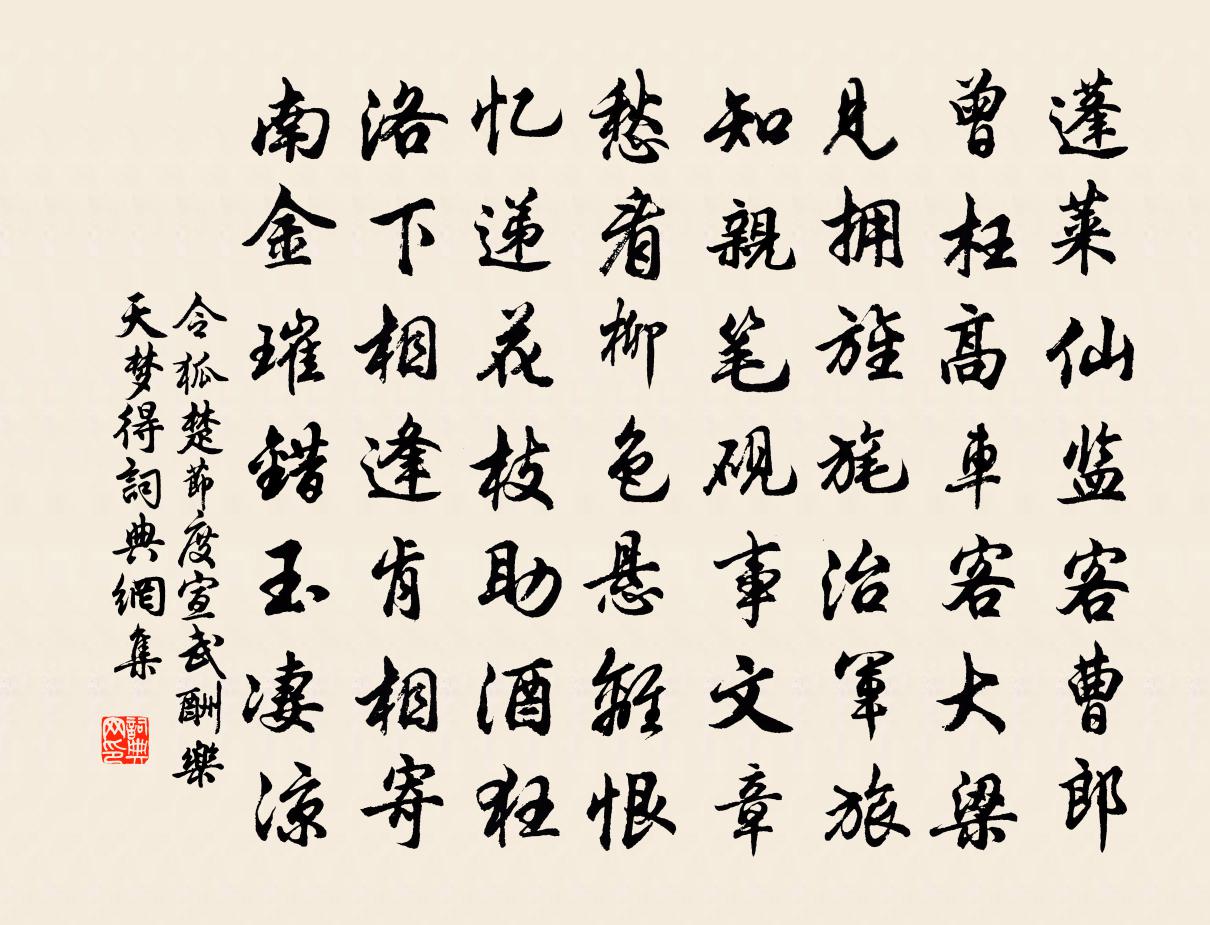 蓬莱仙监客曹郎
曾枉高車客大梁
見拥旌旄治軍旅
知親笔砚事文章
愁看柳色悬離恨
忆递花枝助酒狂
洛下相逢肯相寄
南金璀錯玉凄凉
令狐楚節度宣武酬樂
天梦得詞典網集
詞典网印